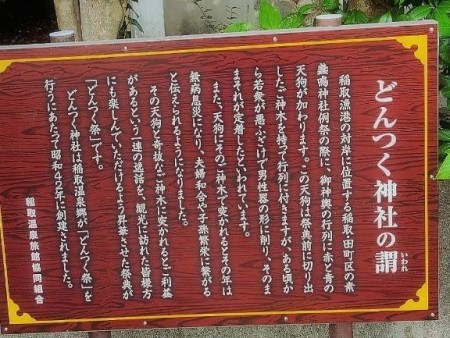 どんつく神社の謂
いわれ
稲取漁港の対岸に位置する稲取・田町区の素
盞鳴神社例祭の際に、御神輿の行列に赤と青の
天狗が加わります。この天狗は祭典前に切り出
したご神木を持って行列に付きますが、ある頃か
ら若衆が悪ふざけで男性器の形に削り、そのま
まそれが定着したといわれています。
また、天狗にそのご神木で突かれるとその年は
無病息災になり、夫婦和合や子孫繁栄に繋がる
と伝えられるようになりました。
その天狗と奇抜なご神木に突かれるとご利益
があるという一連の逸話を、観光に訪れた皆様方
にも楽しんでいただけるよう昇華させた祭典が
「どんつく祭」です。
どんつく神社は稲取温泉郷が「どんつく祭」を
行うにあたって昭和42年に創建されました。
稲取温泉旅館協同組合